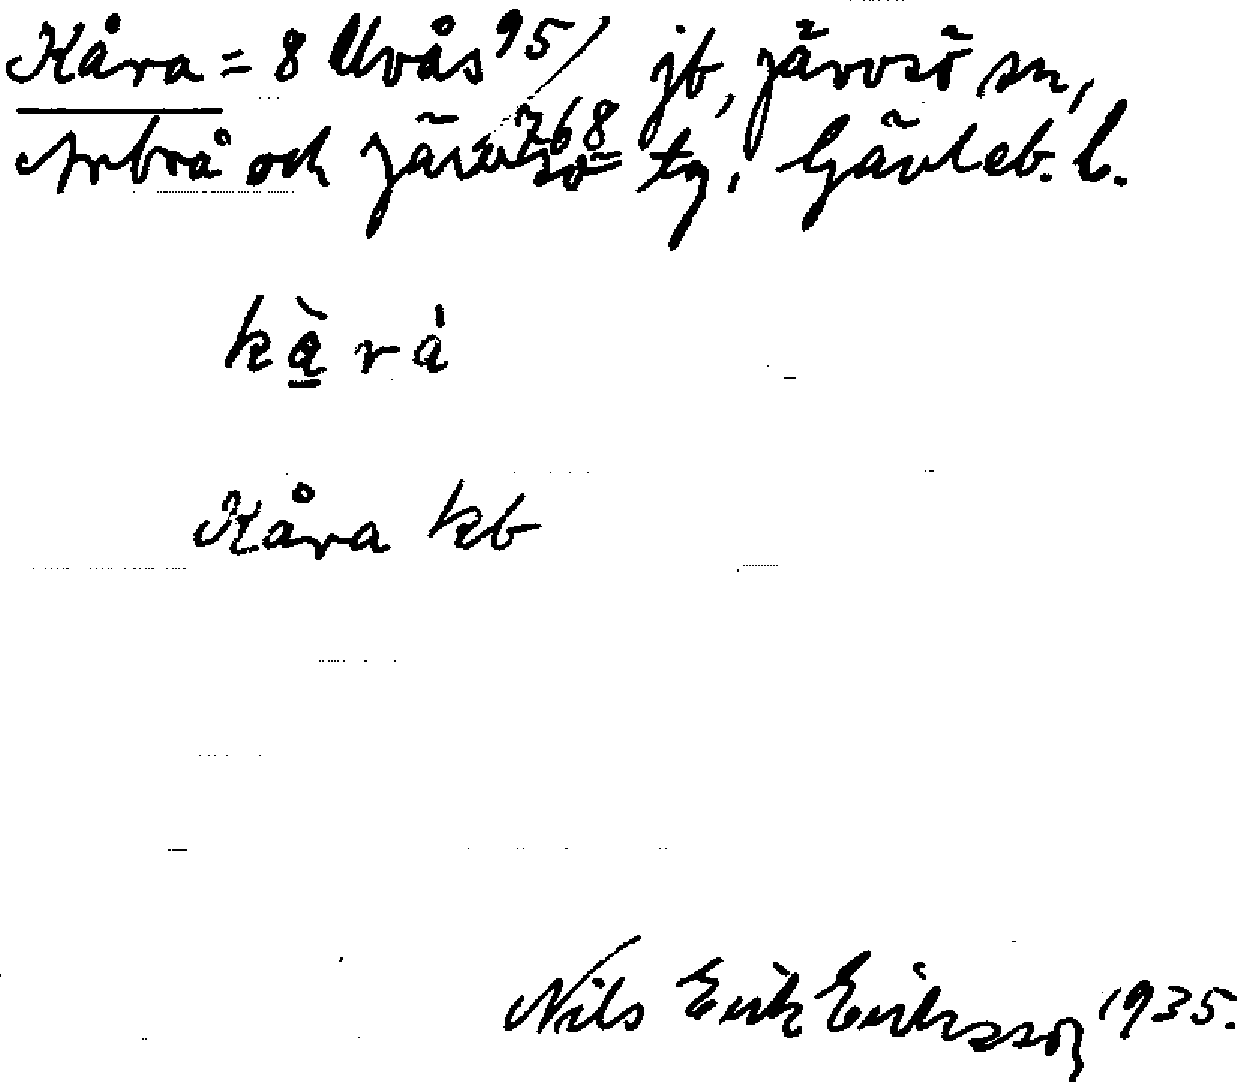 Kåra = 8 Uvås 95/768 jb, Järvsö sn,
Arbrå och Järvsö tg, Gävleb. l.
kàrá
Kåra kb
Nils Erik Eriksson 1935.